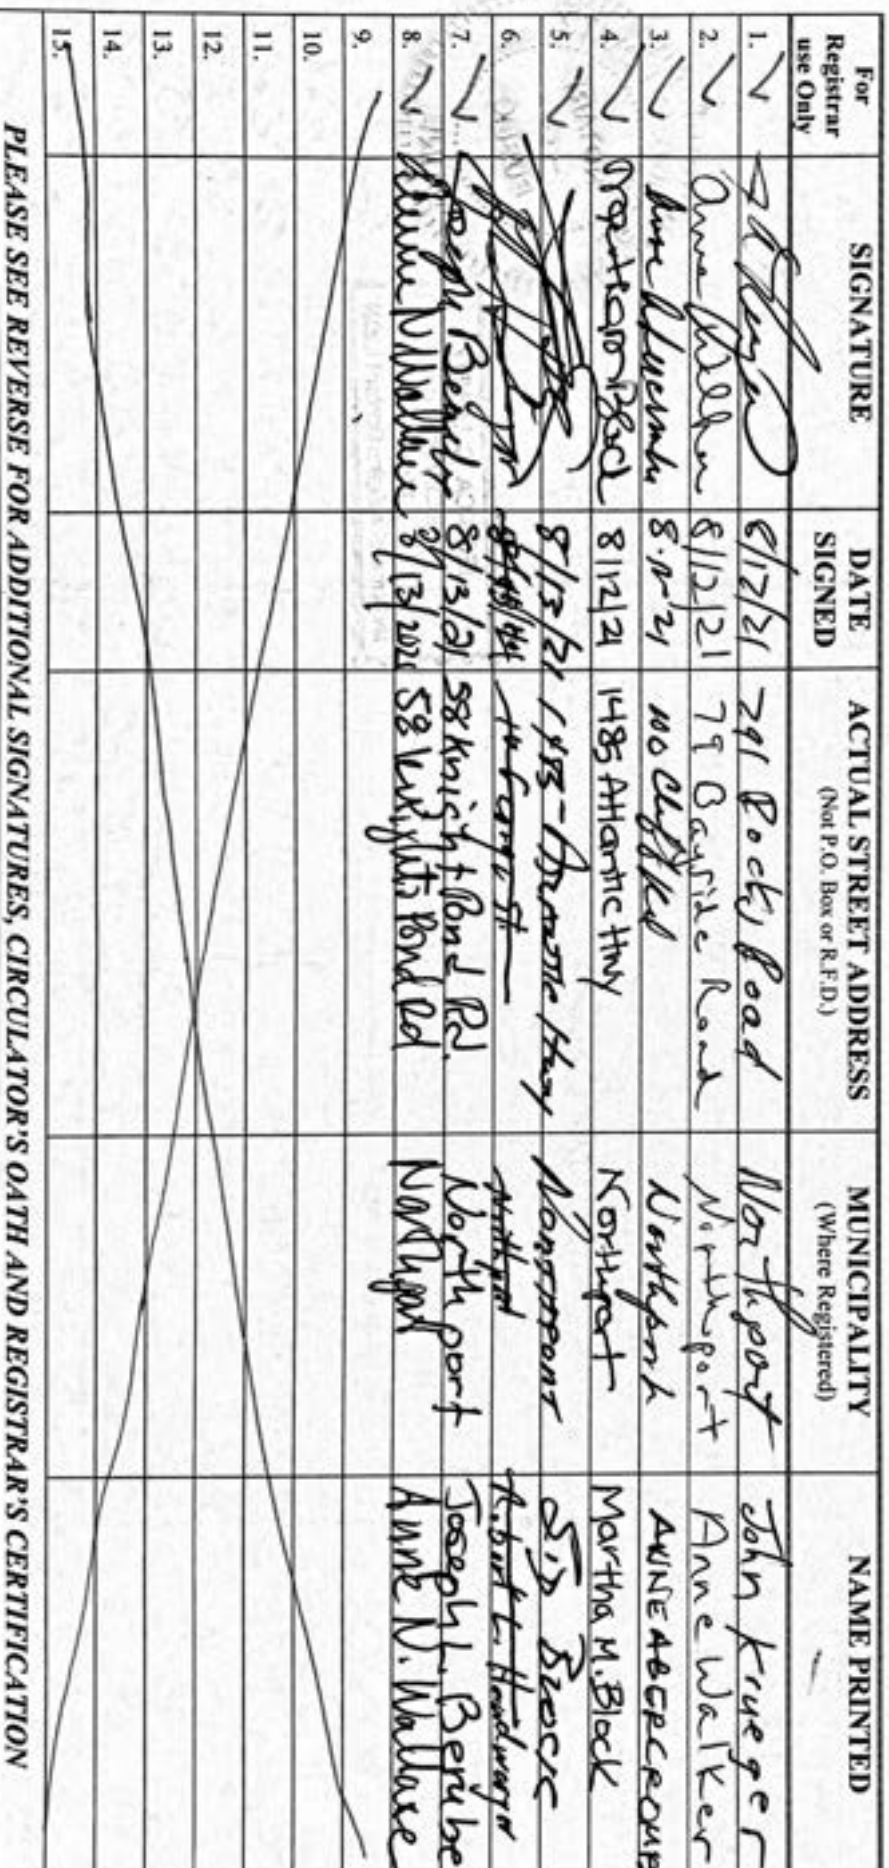 For Registrar use Only SIGNATURE DATE SIGNED ACTUAL STREET ADDRESS (Not P.O. Box or R.F.D.) MUNICIPALITY (Where Registered) NAME PRINTED
1. 8/12/21 291 Rocky Road Northport John Krueger
2. Anne Walker 8/12/21 79 Bayside Road Northport Anne Walker
3. Anne 8.12.21 Northport ANNE ABERCROMB
4. Block 8/12/21 1485 Atlantic Hwy Northport Martha M. Block
5. 8/13/21 1485 Atlantic Hwy Northport Block
6. Northport Robert L.
7. Joseph Berube 8/13/21 58 Knight Pond Rd. Northport Joseph L. Berube
8. Anne N Wallace 8/13/2021 58 Knights Pond Rd Northport Anne N. Wallace
9.
10.
11.
12.
13.
14.
15.
PLEASE SEE REVERSE FOR ADDITIONAL SIGNATURES, CIRCULATOR'S OATH AND REGISTRAR'S CERTIFICATION